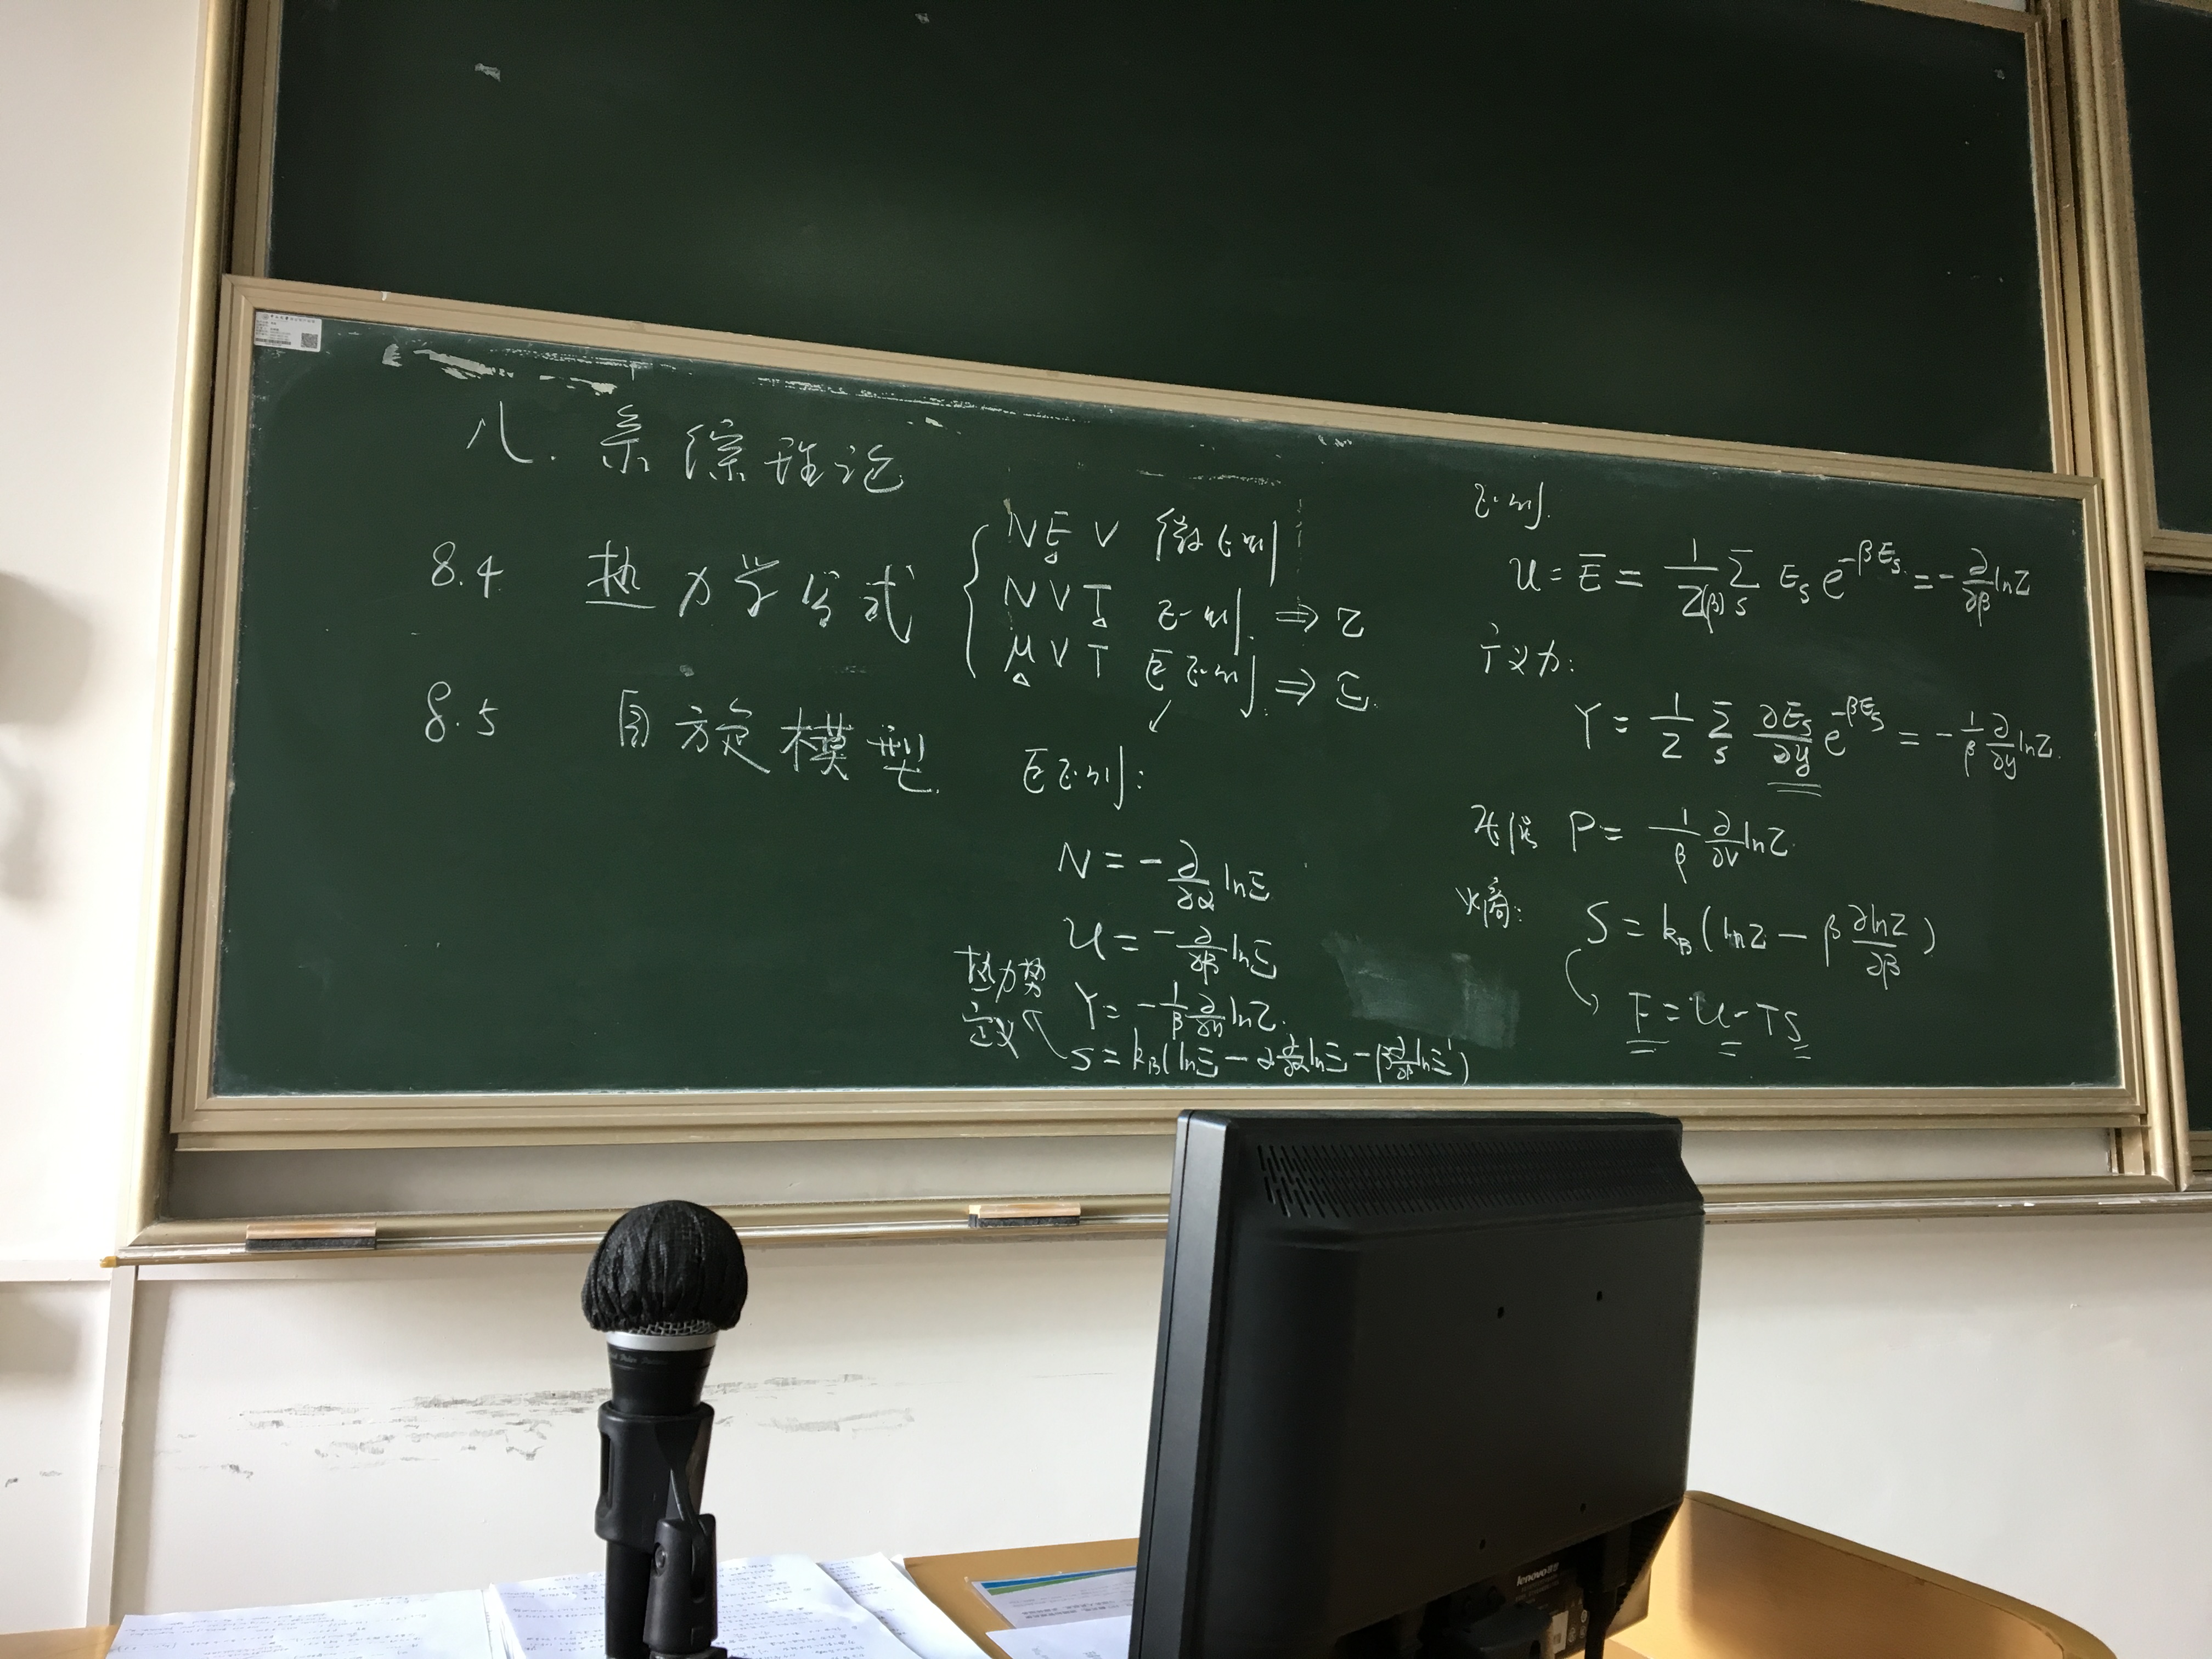 八. 系综理论
8.4 热力学公式
8.5 自旋模型
N E V 微正则
N V T 正则 ⇒ Z
μ V T 巨正则 ⇒ Ξ
巨正则:
N = -∂/∂α lnΞ
U = -∂/∂β lnΞ
Y = -1/β ∂/∂y lnZ
S = k_B(lnΞ - α ∂/∂α lnΞ - β ∂/∂β lnΞ)
热力势
定义
正则.
U = Ē = 1/Z(β) Σ_s E_s e^{-βE_s} = -∂/∂β lnZ
广义力:
Y = 1/Z Σ_s ∂E_s/∂y e^{-βE_s} = -1/β ∂/∂y lnZ.
P = 1/β ∂/∂V lnZ
熵:
S = k_B(lnZ - β ∂lnZ/∂β)
F = U - TS
lenovo